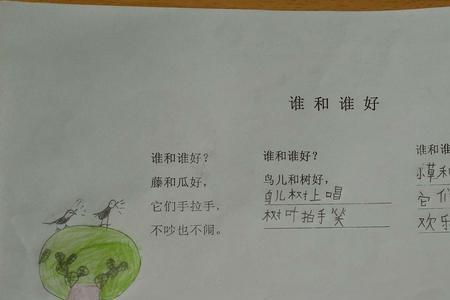 谁和谁好
谁和谁好？
藤和瓜好，
它们手拉手，
不吵也不闹。
谁和谁好？
鸟儿和树好，
鸟儿树上唱
树叶拍手笑
谁和谁
草和
它们
欢乐